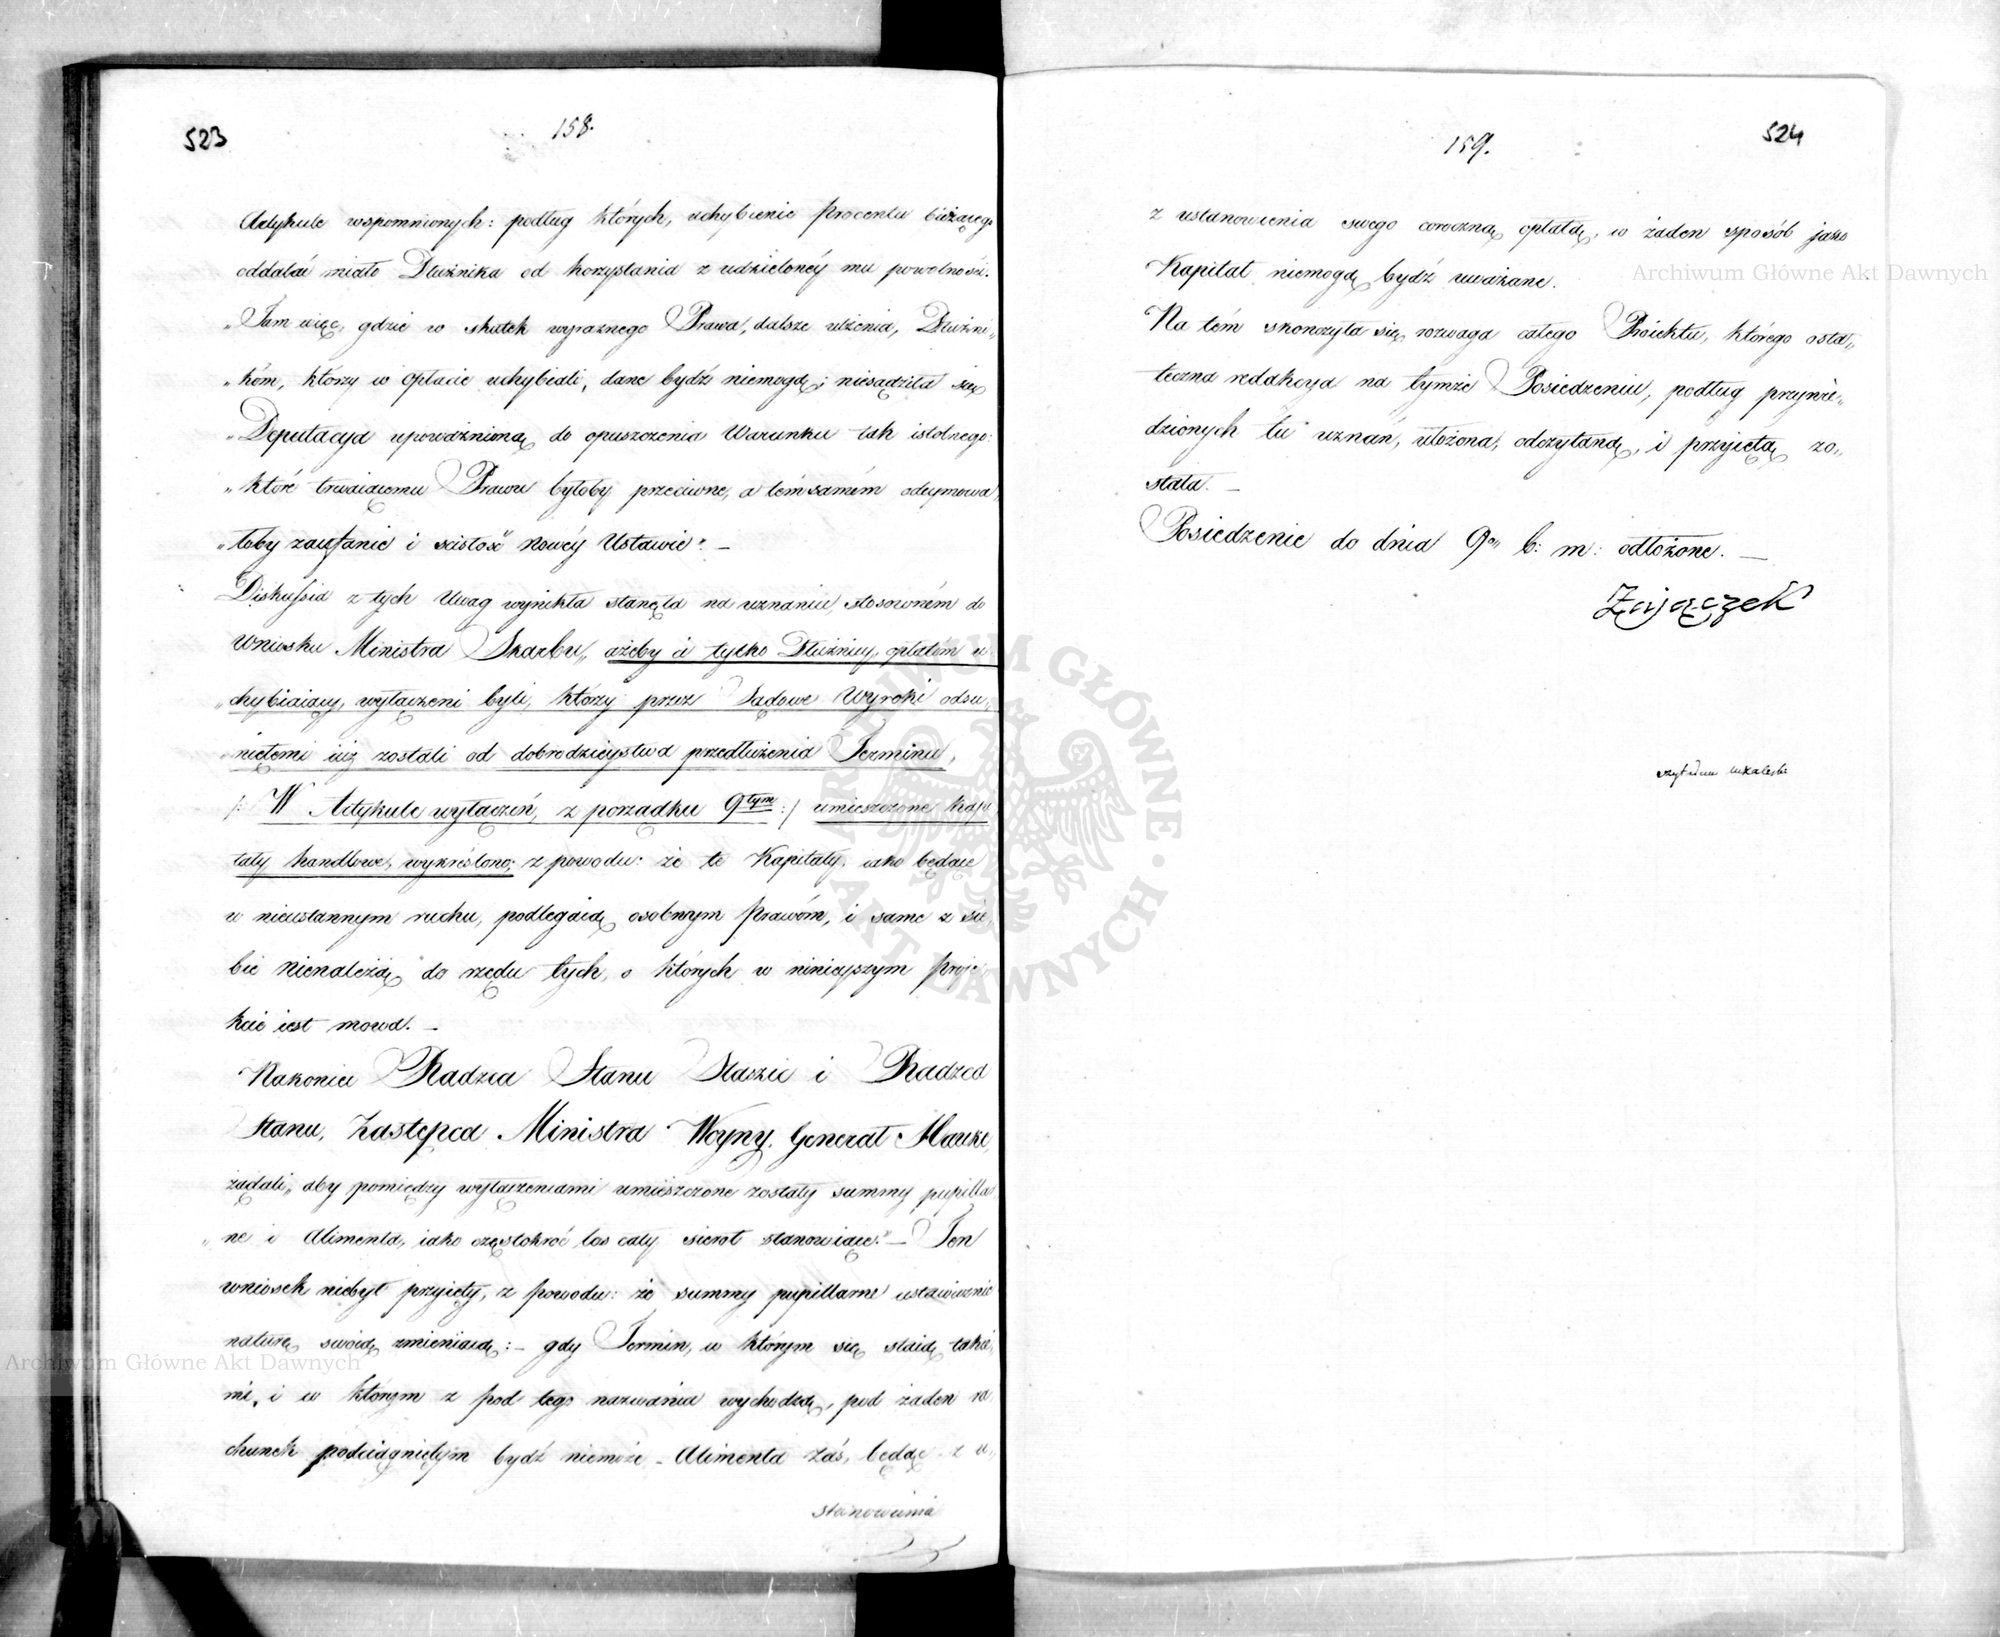 523
158.
Artykule wspomnionych: podług których, uchybienie Procentu bieżącego
oddalać miało Dłużnika od korzystania z udzielonéy mu powolności.
„Tam więc, gdzie w skutek wyraznego Prawa, dalsze ulżenia, Dłużni„
„kóm, którzy w opłacie uchybiali, dane bydź niemogą; niesądziła się
„Deputacya upoważnioną do opuszczenia Warunku tak istotnego:
„które trwaiącemu Prawu byłoby przeciwne, a tém samém odeymowa
„łoby zaufanie i scisłość Nowéy Ustawie". —
Diskussia z tych Uwag wynikła stanęła na uznaniu, stosowném do
Wniosku Ministra Skarbu, „ażeby ci tylko Dłużnicy, opłatóm u
„chybiaiący, wyłączeni byli, którzy przez Sądowe Wyroki odsu„
„niętemi iuż zostali od dobrodzieystwa przedłużenia Terminu„
/: W Artykule wyłączeń, z porządku 9tym :/ umieszczone Kapi
tały handlowe, wykréślono; z powodu: że te Kapitały, iako będące
w nieustannym ruchu, podlegaią osobnym Prawóm, i same z sie„
bie nienależą do rzędu tych, o których w ninieyszym Proje
kcie iest mowa. —
Nakoniec Radzca Stanu Staszic i Radzca
Stanu, Zastępca Ministra Woyny, Generał Hauke,
żądali, „aby pomiędzy wyłączeniami umieszczone zostały summy pupilla„
„ne i Alimenta, iako częstokroć los cały sierot stanowiące." — Ten
wniosek niebył przyięty, z powodu: że summy pupillarne ustawicznie
naturę swoią zmieniaią: — gdy Termin, w którym się staią takie„
mi, i w którym z pod tego nazwania wychodzą, pod żaden ra
chunek podciągniętym bydź niemoże — Alimenta zaś, będąc z u„
stanowienia
524
159.
z ustanowienia swego coroczną opłatą, w żaden sposób jako
Kapitał niemogą bydź uważane.
Na tém skonczyła się rozwaga całego Proiektu, którego osta„
teczna redakcya na tymże Posiedzeniu, podług przywie„
dzionych tu uznań, ułożoną, odczytaną, i przyiętą zo„
stała. —
Posiedzenie do dnia 9o b: m: odłożone. —
Zajączek
Archiwum Główne Akt Dawnych
Archiwum Główne Akt Dawnych
ARCHIWUM GŁÓWNE • AKT DAWNYCH •